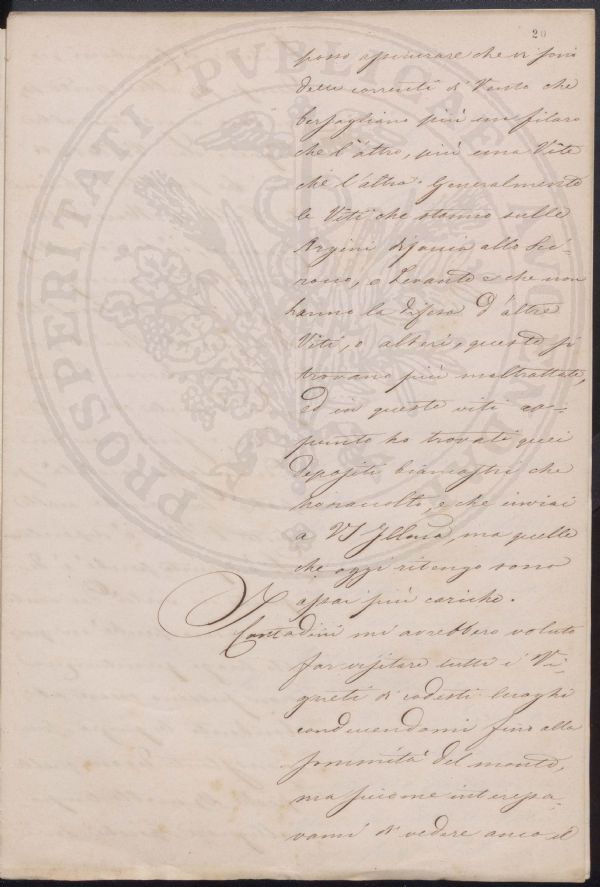 20
posso assicurare che vi sono
delle correnti di Vento che
bersagliano più un filaro
che l'altro, più una Vite
che l'altra. Generalmente
le Viti che stanno sulle
Argini difaccia allo Sci-
rocco, o Levante e che non
hanno la difesa d'altre
Viti, o alberi, queste si
trovano più maltrattate,
ed in queste viti ap-
punto ho trovati quei
depositi biancastri che
ho raccolto, e che inviai
a VS Illma, ma quelle
che oggi ritengo sono
assai più cariche.
I Contadini mi avrebbero voluto
far visitare tutti i Vi-
gneti di codesti luoghi
conducendomi fino alla
sommità del monte,
ma siccome interessa-
vami di vedere anco il
PROSPERITATI PVBLICAE AV